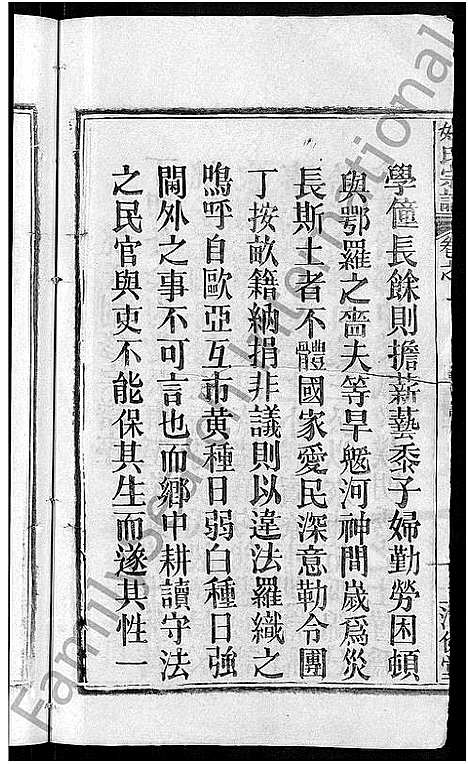 學僮長餘則擔薪藝黍子婦勤勞困頓
與鄂羅之嗇夫等旱魃河神間歲爲災
長斯土者不體國家愛民深意勒令團
丁按畝籍納捐非議則以違法羅織之
嗚呼自歐亞互市黄種日弱白種日強
閫外之事不可言也而鄉中耕讀守法
之民官與吏不能保其生而遂其性一
氏宗譜
FamilySearch International